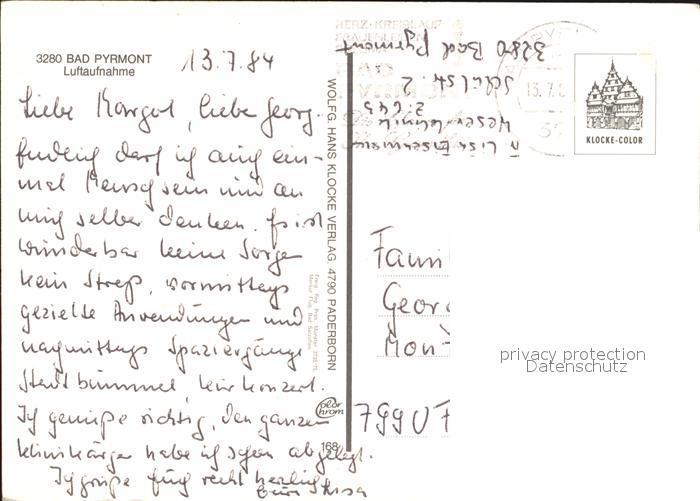 3280 BAD PYRMONT
Luftaufnahme
13.7.84
Liebe Margot, liebe Georg.
Endlich darf ich auch ein-
mal Mensch sein und an
mich selber denken. Es ist
wunderbar keine Sorgen
kein Streß, vormittags
gezielte Anwendungen und
nachmittags Spaziergänge
Stadtbummel, Kurkonzert.
Ich genieße richtig, den ganzen
Klinikärger habe ich schon abgelegt.
Ich grüße Euch recht herzlich
Eure Lisa
WOLFG. HANS KLOCKE VERLAG, 4790 PADERBORN
color
chrom
168
HERZ-KREISLAUF
FRAUENLEIDEN
BAD
PYRMONT
Lisa
Weser-Klinik
Z. 643
Schulstr. 2
3280 Bad Pyrmont
13.7.8
KLOCKE-COLOR
Fami
Georg
Mon
799 U F
privacy protection
Datenschutz